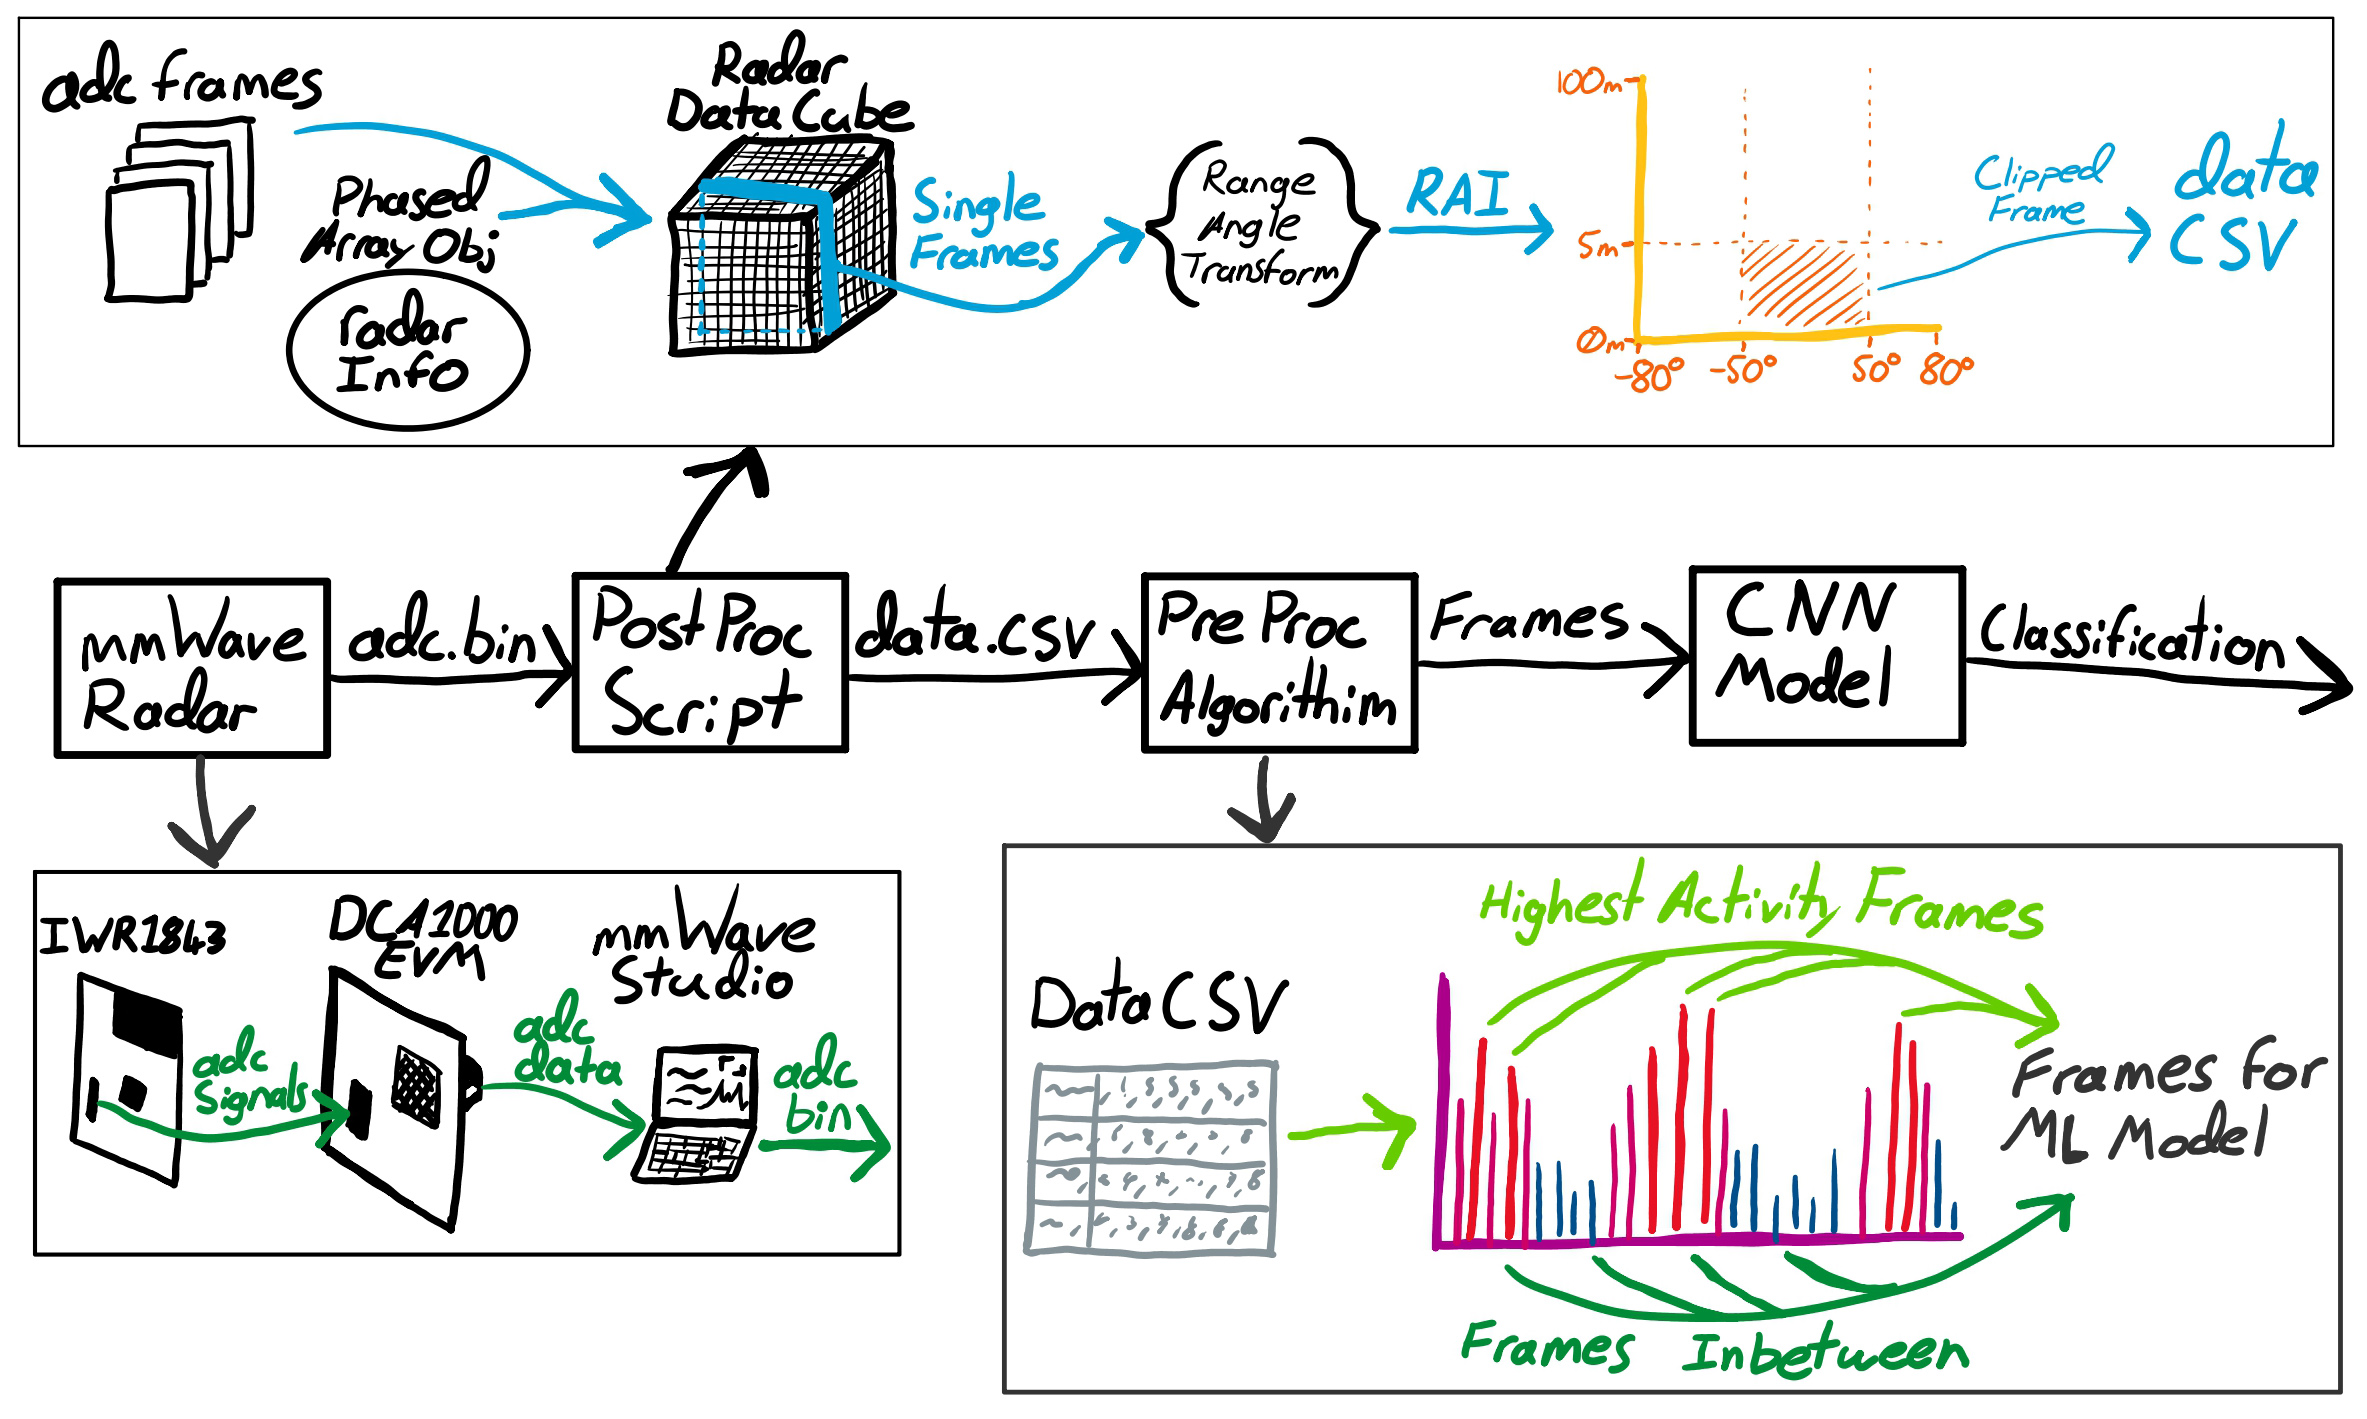 adc frames
Phased
Array Obj
radar
Info
Radar
Data Cube
Single
Frames
Range
Angle
Transform
RAI
100m
5m
0m
-80°
-50°
50°
80°
Clipped
Frame
data
CSV
mmWave
Radar
adc.bin
Post Proc
Script
data.csv
Pre Proc
Algorithim
Frames
CNN
Model
Classification
IWR1843
DCA1000
EVM
mmWave
Studio
adc
Signals
adc
data
adc
bin
Data CSV
Highest Activity Frames
Frames for
ML Model
Frames Inbetween